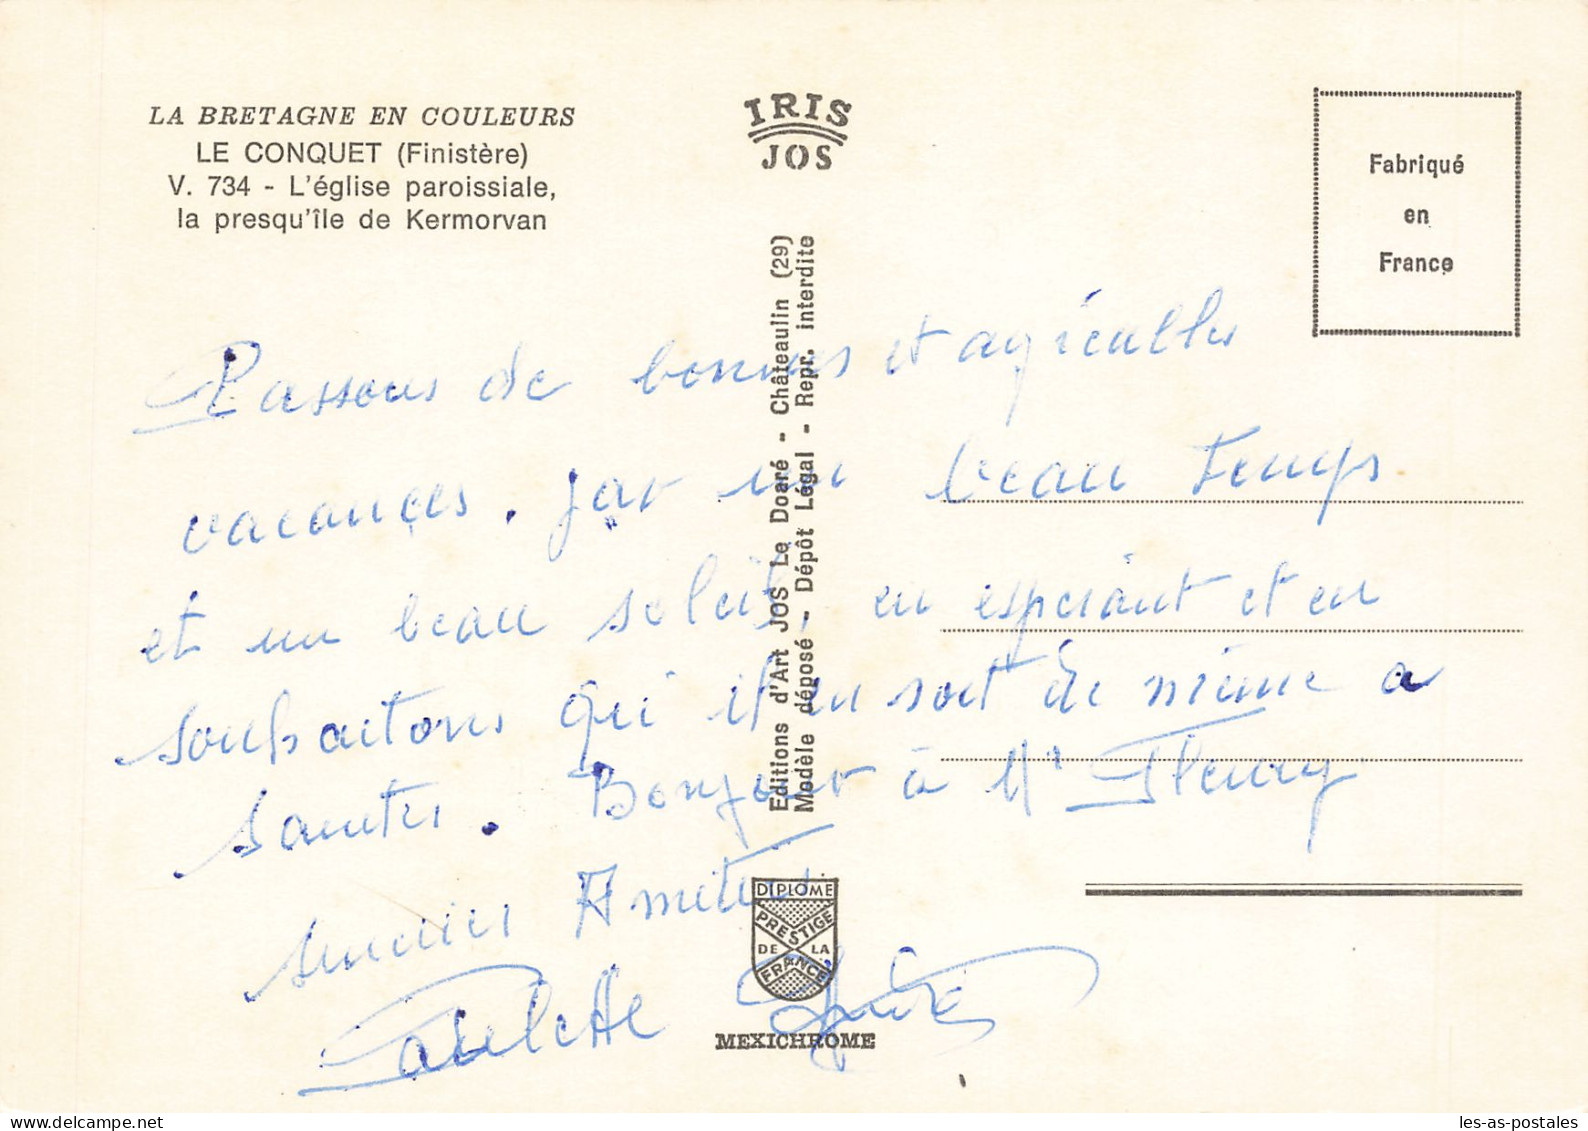 LA BRETAGNE EN COULEURS
LE CONQUET (Finistère)
V. 734 - L'église paroissiale,
la presqu'île de Kermorvan
IRIS
JOS
Fabriqué
en
France
Editions d'Art JOS Le Doaré - Châteaulin (29)
Modèle déposé - Dépôt Légal - Repr. interdite
Passons de bonnes et agréables
vacances. par un beau temps
et un beau soleil, en espérant et en
souhaitons qu'il en soit de même a
Saintes. Bonjour à Mr Fleury
Amitiés
Paulette
DIPLOME
PRESTIGE
DE LA
FRANCE
MEXICHROME
les-as-postales
delcampe.net